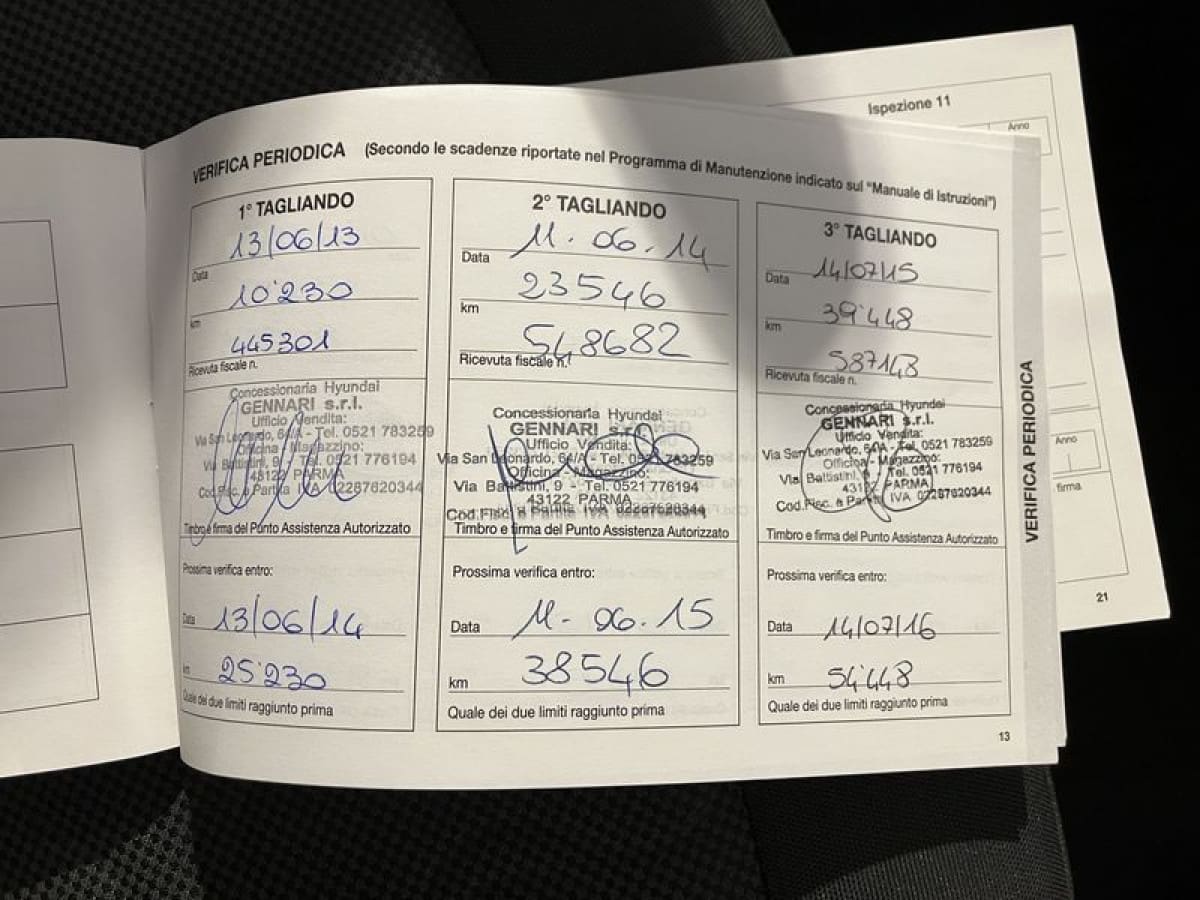 Ispezione 11
Anno
VERIFICA PERIODICA (Secondo le scadenze riportate nel Programma di Manutenzione indicato sul "Manuale di Istruzioni")
1° TAGLIANDO
13/06/13
Data
10'230
km
445301
Ricevuta fiscale n.
Concessionaria Hyundai
GENNARI s.r.l.
Ufficio Vendita:
Via San Leonardo, 64/A - Tel. 0521 783259
Officina - Magazzino:
Via Battistini, 9 - Tel. 0521 776194
43122 PARMA
Cod.Fisc. e Partita IVA 02287620344
Timbro e firma del Punto Assistenza Autorizzato
Prossima verifica entro:
Data 13/06/14
km 25'230
Quale dei due limiti raggiunto prima
2° TAGLIANDO
11.06.14
Data
23546
km
548682
Ricevuta fiscale n.
Concessionaria Hyundai
GENNARI s.r.l.
Ufficio Vendita:
Via San Leonardo, 64/A - Tel. 0521 783259
Officina - Magazzino:
Via Battistini, 9 - Tel. 0521 776194
43122 PARMA
Cod.Fisc. e Partita IVA 02287620344
Timbro e firma del Punto Assistenza Autorizzato
Prossima verifica entro:
Data 11-06.15
km 38546
Quale dei due limiti raggiunto prima
3° TAGLIANDO
Data 14/07/15
39'448
km
587143
Ricevuta fiscale n.
Concessionaria Hyundai
GENNARI s.r.l.
Ufficio Vendita:
Via San Leonardo, 64/A - Tel. 0521 783259
Officina - Magazzino:
Via Battistini, 9 - Tel. 0521 776194
43122 PARMA
Cod.Fisc. e Partita IVA 02287620344
Timbro e firma del Punto Assistenza Autorizzato
Prossima verifica entro:
Data 14/07/16
km 54'448
Quale dei due limiti raggiunto prima
13
VERIFICA PERIODICA
Anno
firma
21